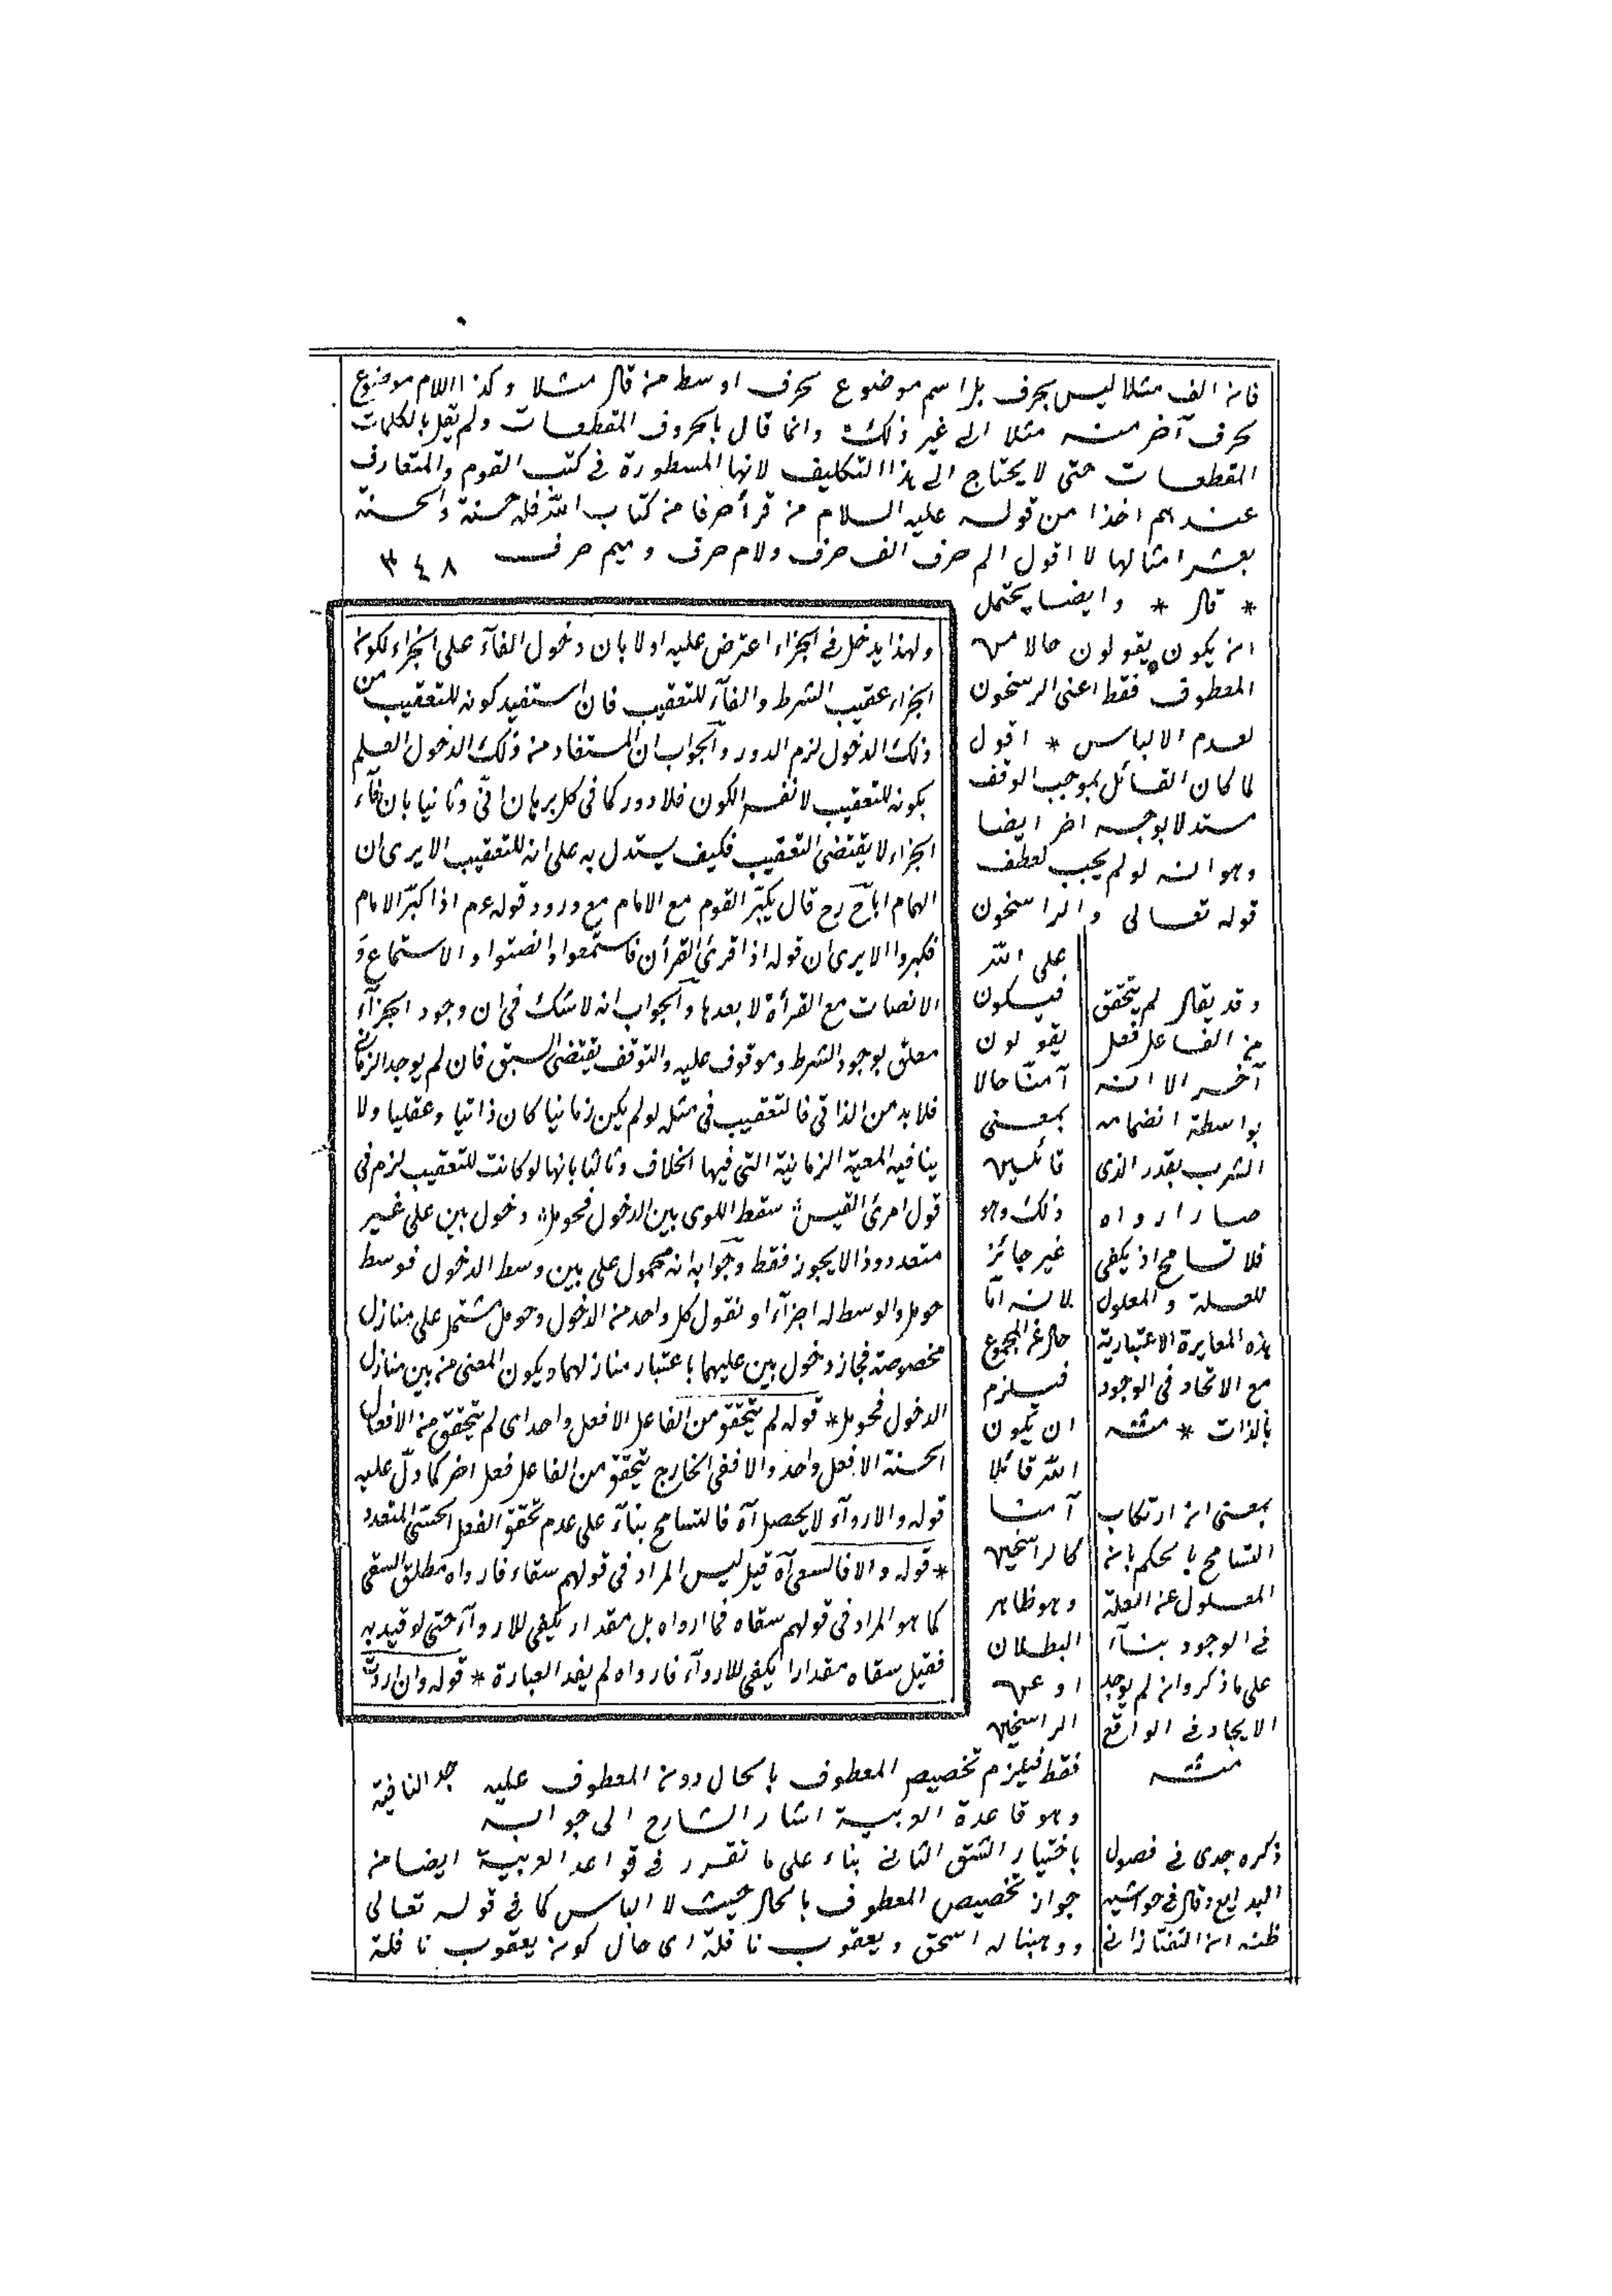 فان الف مثلا ليس بحرف بل اسم موضوع لحرف اوسط من قال مثلا وكذا اللام موضوع
لحرف آخر منه مثلا الى غير ذلك وانما قال بالحروف المقطعات ولم يقل بالكلمات
المقطعات حتى لا يحتاج الى هذا التكليف لانها المسطورة فى كتب القوم والمتعارف
عندهم اخذا من قوله عليه السلام من قرأ حرفا من كتاب الله فله حسنة والحسنة
بعشر امثالها لا اقول الم حرف الف حرف ولام حرف وميم حرف ٣٤٨
* قال * وايضا يحتمل
ان يكون يقولون حالا من
المعطوف فقط اعنى الرسخون
لعدم الالباس * اقول
لما كان القائل بموجب الوقف
مستدلا بوجه اخر ايضا
وهو انه لو لم يجب لعطف
قوله تعالى والراسخون
على الله
فيكون
يقولون
آمنا حالا
بمعنى
قائلين
ذلك وهو
غير جائز
لانه اما
حال عن المجموع
فيلزم
ان يكون
الله قائلا
آمنا
كالراسخين
وهو ظاهر
البطلان
او عن
الراسخين
فقط فيلزم تخصيص المعطوف بالحال دون المعطوف عليه
وهو قاعدة العربية اشار الشارح الى جوابه
باختيار الشق الثانى بناء على ما تقرر فى قواعد العربية ايضا من
جواز تخصيص المعطوف بالحال حيث لا الباس كما فى قوله تعالى
ووهبنا له اسحق ويعقوب نافلة اى حال كون يعقوب نافلة
ولهذا يدخل فى الجزاء اعترض عليه اولا بان دخول الفآء على الجزاء لكون
الجزاء عقيب الشرط والفآء للتعقيب فان استفيد كونه للتعقيب من
ذلك الدخول لزم الدور والجواب ان المستفاد من ذلك الدخول العلم
بكونه للتعقيب لا نفس الكون فلا دور كما فى كل برهان انّى وثانيا بان فآء
الجزاء لا يقتضى التعقيب فكيف يستدل به على انه للتعقيب الا يرى ان
الهمام اباح رح قال يكبّر القوم مع الامام مع ورود قوله عم اذا كبّر الامام
فكبروا الا يرى ان قوله اذا قرئ القرأن فاستمعوا وانصتوا والاستماع و
الانصات مع القرأة لا بعدها والجواب انه لا شك فى ان وجود الجزآء
معلق بوجود الشرط وموقوف عليه والتوقف يقتضى السبق فان لم يوجد الزمانى
فلا بد من الذاتى فالتعقيب فى مثله لو لم يكن زمانيا كان ذاتيا وعقليا ولا
ينافيه المعية الزمانية التى فيها الخلاف وثالثا بانها لو كانت للتعقيب لزم فى
قول امرئ القيس سقط اللوى بين الدخول فحومل دخول بين على غير
متعدد وذا لا يجوز فقط وجوابه انه محمول على بين وسط الدخول فوسط
حومل والوسط له اجزآء او نقول كل واحد من الدخول وحومل مشتمل على منازل
مخصوصة فجاز دخول بين عليهما باعتبار منازلهما ويكون المعنى من بين منازل
الدخول فحومل * قوله لم يتحقق من الفاعل الا فعل واحد اى لم يتحقق من الافعال
الحسنة الا فعل واحد والا ففى الخارج يتحقق من الفاعل فعل اخر كما دلّ عليه
قوله والاروآء لا يحصل آه فالتسامح بنآء على عدم تحقق الفعل الحسّى المتعدد
* قوله والا فالسعى آه قيل ليس المراد فى قولهم سقاء فارواه مطلق السقى
كما هو المراد فى قولهم سقاه فما ارواه بل مقدار يكفى للاروآء حتى لو قيد به
فقيل سقاه مقدارا يكفى للاروآء فارواه لم يفد العبارة * قوله وان اردت
وقد يقال لم يتحقق
من الفاعل فعل
آخر الا انه
بواسطة انضمامه
الشرب بقدر الذى
صار ارواه
فلا تسامح اذ يكفى
للعلة والمعلول
هذه المغايرة الاعتبارية
مع الاتحاد فى الوجود
بالذات * منه
بمعنى ان ارتكاب
التسامح بالحكم بان
المعلول عن العلة
فى الوجود بنآء
على ما ذكر وان لم يوجد
الايجاد فى الواقع
منه
ذكره جدى فى فصول
البدايع وقال فى حواشيه
ظنه ان التفتازانى